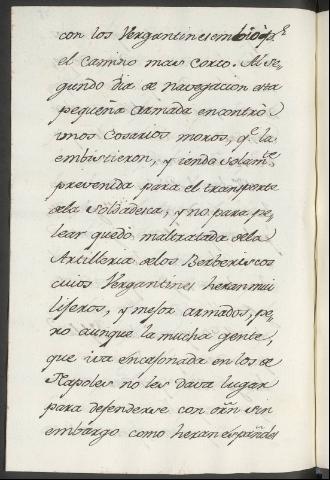 con los Vergantines embiò pr.
el camino mas corto. Al se,
gundo dia de navegacion esta
pequeña armada encontrò
unos Cosarios moros, qe. la
embistieron, y iendo solamte.
prevenida para el transporte
dela Soldadesca, y no para pe,
lear quedò maltratada dela
Artilleria delos Berberiscos
cuios Vergantines heran mu
liferos, y mejor armados, pe,
rò aunque la mucha gente,
que iva encajonada en los de
Napoles no les dava lugar
para defenderse con orn̄ sin
embargo como heran españoles